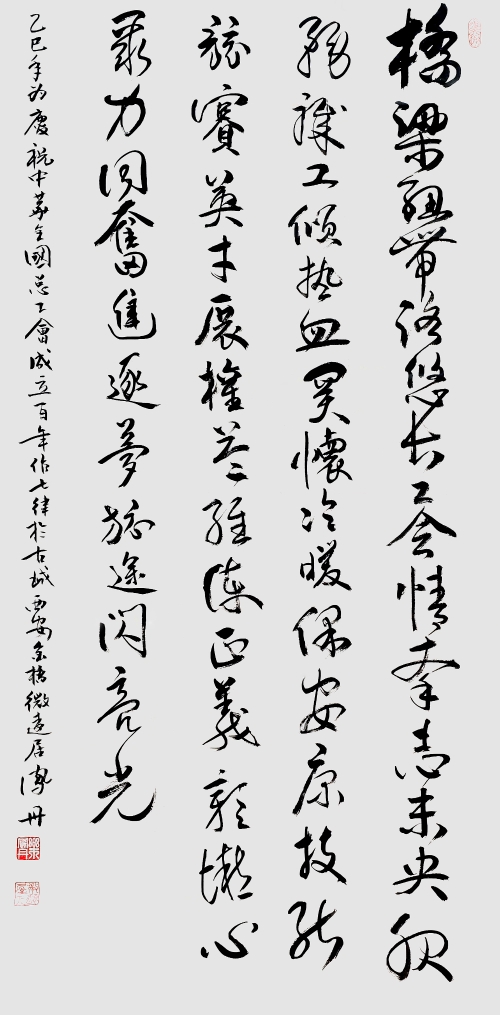 橋梁紐帶路悠长工会情牵志未央服
務職工傾热血関懷冷暖保安康技能
競賽英才展權益維護正義彰凝心
聚力同奮進逐夢旅途閃亮光
乙巳年为慶祝中華全國总工會成立百年作七律於古城西安金橋微遠居 丹